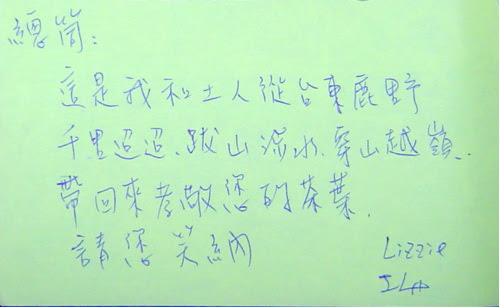 總筒:
這是我和土人從台東鹿野
千里迢迢、跋山涉水、穿山越嶺、
帶回來孝敬您的茶葉.
請您笑納
Lizzie
土人